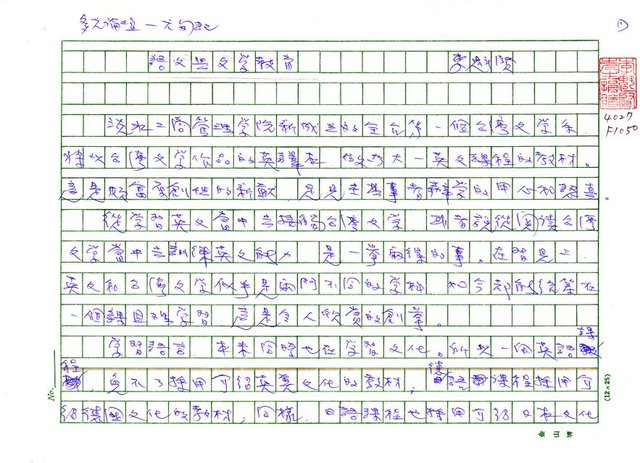 多元論壇—尤旬記
(1)
語文與文學教育 李魁賢
4027
F1050
淡水工商管理學院新成立的全台第一個台灣文學系
將以台灣文學作品的英譯本做為大一英文課程的教材。
這是頗富原創性的新猷，足見主其事者辦學的用心和誠意。
從學習英文當中去接觸台灣文學，或者說從閱讀台灣
文學當中去訓練英文能力，是一舉兩得的事。在習見上，
英文和台灣文學似乎是兩門不同的學科，如今卻能統籌在
一個課目裡學習，這是令人欣賞的創舉。
學習語言，本來同時也在學習文化。所以一個英語課
程，免不了採用介紹英美文化的教材，德語課程採用介
紹德國文化的教材，同樣，日語課程也採用介紹日本文化
No.
(12×25)